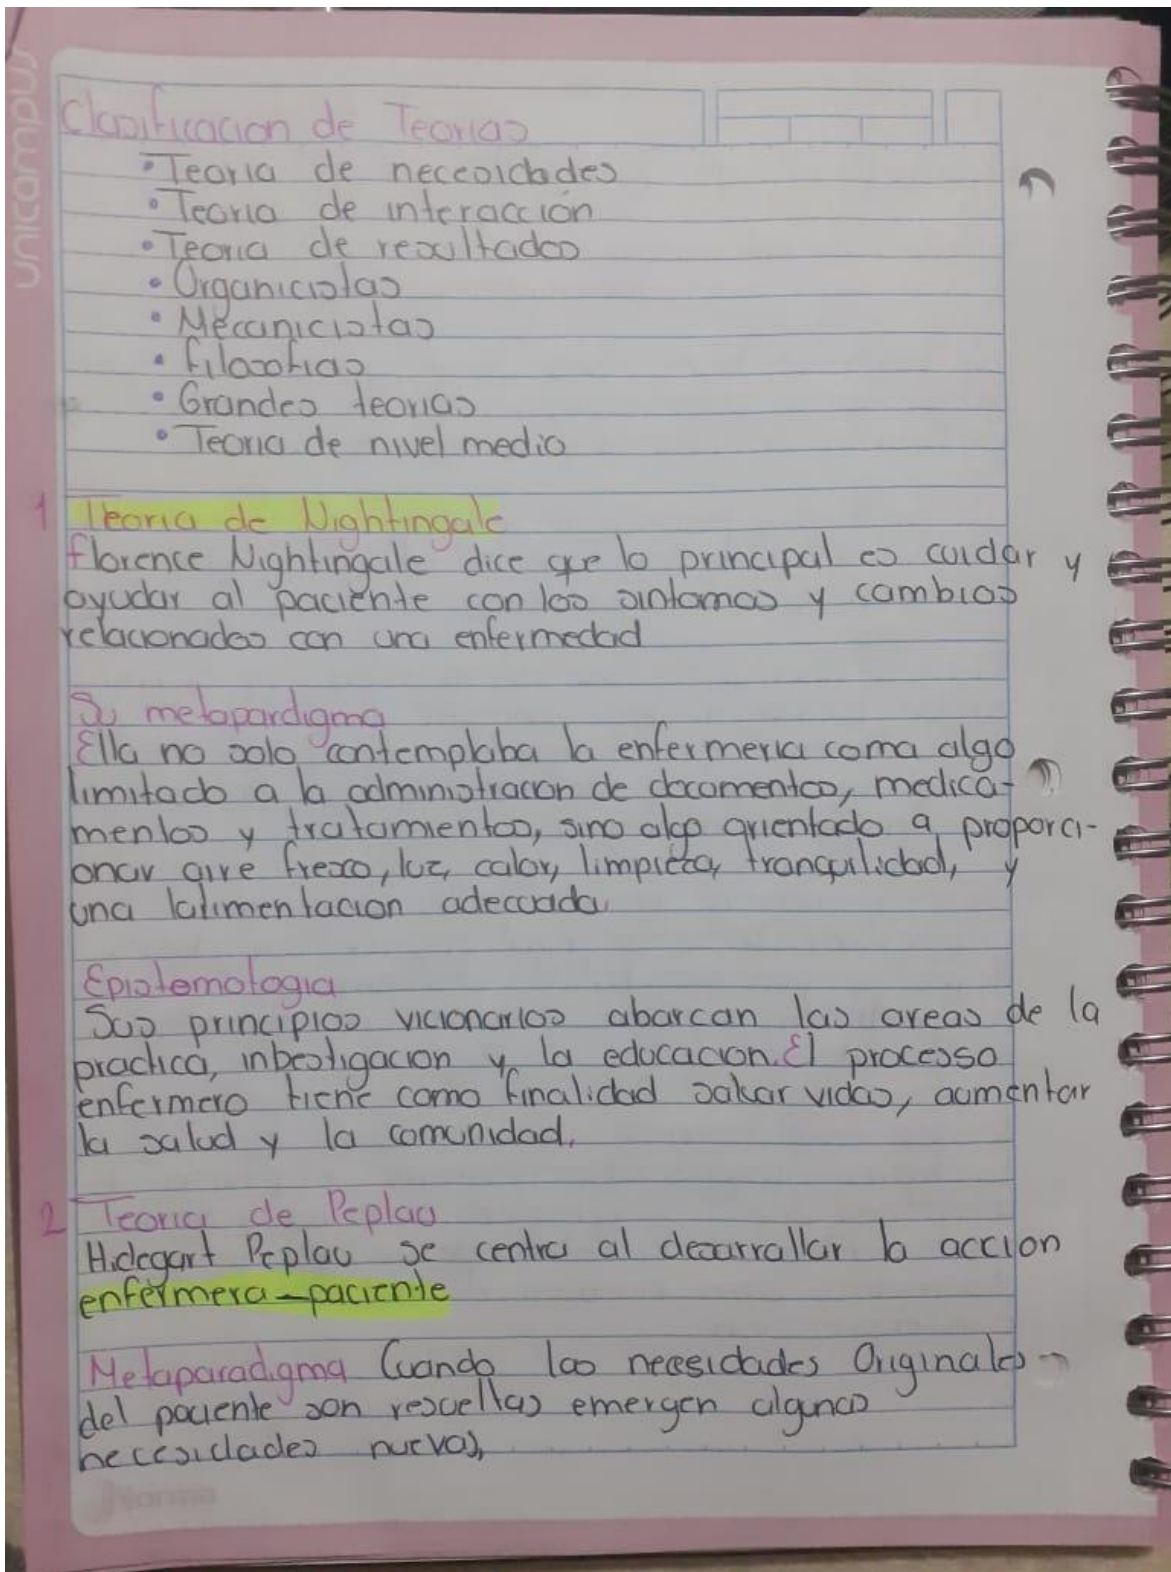 unicampus
Clasificacion de Teorias
• Teoria de necesidades
• Teoria de interacción
• Teoria de resultados
• Organicistas
• Mecanicistas
• filosofias
• Grandes teorias
• Teoria de nivel medio
1 Teoria de Nightingale
florence Nightingale dice que lo principal es cuidar y
ayudar al paciente con los sintomas y cambios
relacionados con una enfermedad
Su metapardigma
Ella no solo contemplaba la enfermeria coma algo
limitado a la administracion de documentos, medica-
mentos y tratamientos, sino algo orientado a proporci-
onar aire fresco, luz, calor, limpieza, tranquilidad, y
una latimentacion adecuada.
Epistemologia
Sus principios vicionarios abarcan las areas de la
practica, inbestigacion y la educacion. El processo
enfermero tiene como finalidad salvar vidas, aumentar
la salud y la comunidad.
2 Teoria de Peplau
Hidegart Peplau se centra al desarrallar la accion
enfermera-paciente
Metaparadigma Cuando las necesidades Originales
del paciente son resueltas emergen algunas
necesidades nuevas,
Norma